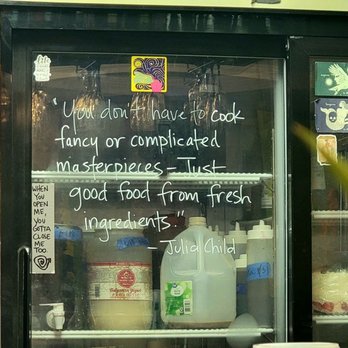 "You don't have to cook
fancy or complicated
masterpieces – Just
good food from fresh
ingredients."
Julia Child
WHEN
YOU
OPEN
ME,
YOU
GOTTA
CLOSE
ME
TOO.